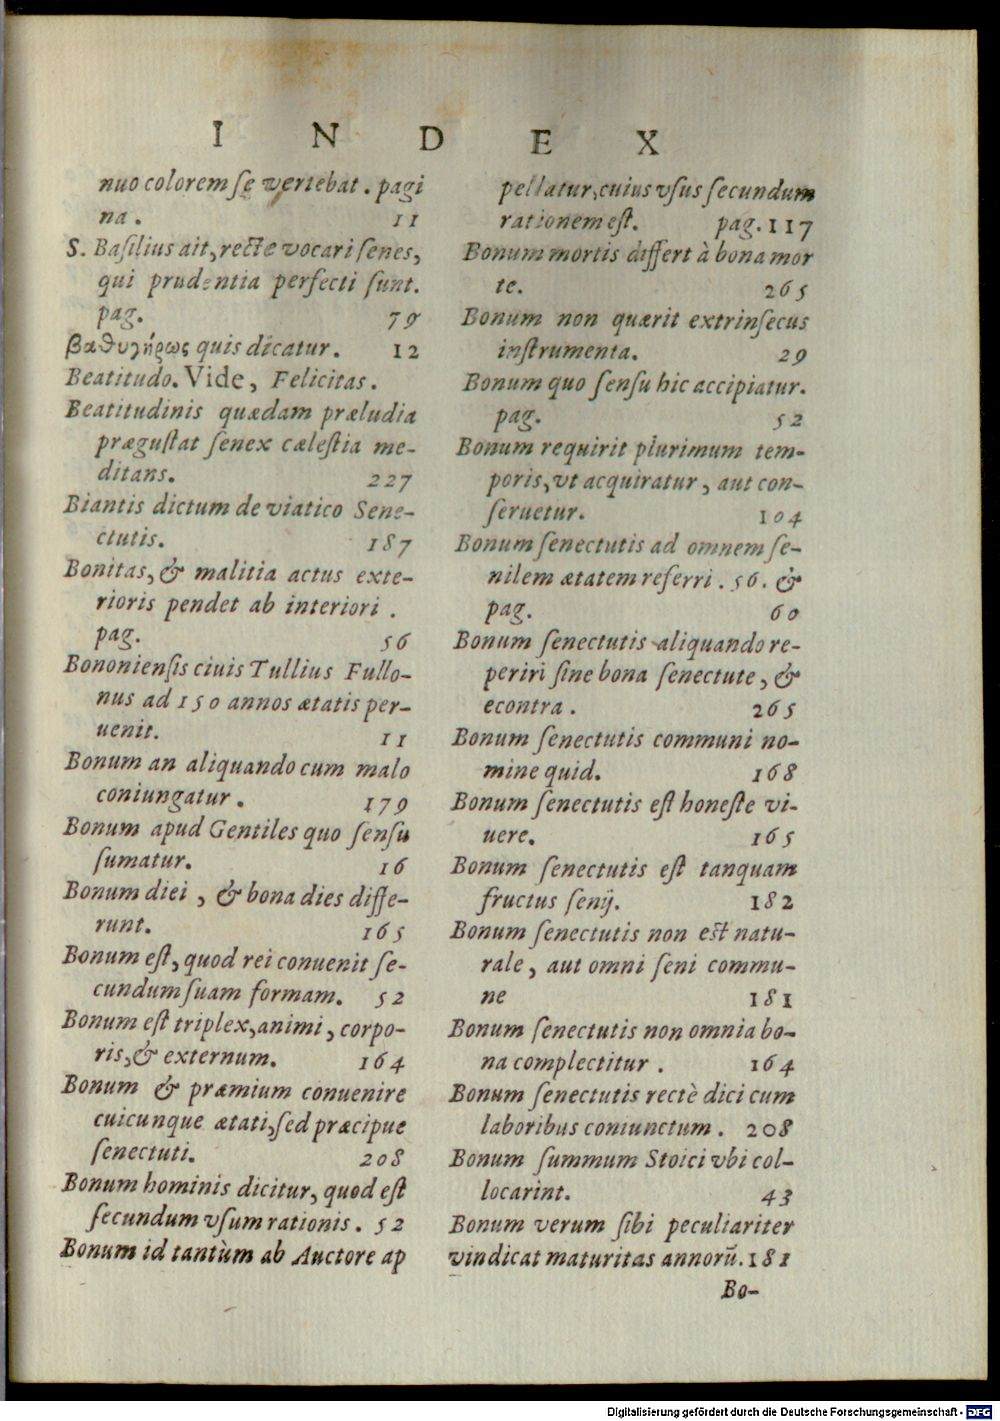 I N D E X
nuo colorem ſe vertebat. pagi
na. 11
S. Baſilius ait, recte vocari ſenes,
qui prudentia perfecti ſunt.
pag. 79
βαθυγήρως quis dicatur. 12
Beatitudo. Vide, Felicitas.
Beatitudinis quædam præludia
præguſtat ſenex cæleſtia me-
ditans. 227
Biantis dictum de viatico Sene-
ctutis. 187
Bonitas, & malitia actus exte-
rioris pendet ab interiori.
pag. 56
Bononienſis ciuis Tullius Fullo-
nus ad 150 annos ætatis per-
uenit. 11
Bonum an aliquando cum malo
coniungatur. 179
Bonum apud Gentiles quo ſenſu
ſumatur. 16
Bonum diei, & bona dies diffe-
runt. 165
Bonum eſt, quod rei conuenit ſe-
cundum ſuam formam. 52
Bonum eſt triplex, animi, corpo-
ris, & externum. 164
Bonum & præmium conuenire
cuicunque ætati, ſed præcipue
ſenectuti. 208
Bonum hominis dicitur, quod eſt
ſecundum vſum rationis. 52
Bonum id tantùm ab Auctore ap
pellatur, cuius vſus ſecundum
rationem eſt. pag. 117
Bonum mortis differt à bona mor
te. 265
Bonum non quærit extrinſecus
inſtrumenta. 29
Bonum quo ſenſu hic accipiatur.
pag. 52
Bonum requirit plurimum tem-
poris, vt acquiratur, aut con-
ſeruetur. 104
Bonum ſenectutis ad omnem ſe-
nilem ætatem referri. 56. &
pag. 60
Bonum ſenectutis aliquando re-
periri ſine bona ſenectute, &
econtra. 265
Bonum ſenectutis communi no-
mine quid. 168
Bonum ſenectutis eſt honeſte vi-
uere. 165
Bonum ſenectutis eſt tanquam
fructus ſenij. 182
Bonum ſenectutis non est natu-
rale, aut omni ſeni commu-
ne 181
Bonum ſenectutis non omnia bo-
na complectitur. 164
Bonum ſenectutis rectè dici cum
laboribus coniunctum. 208
Bonum ſummum Stoici vbi col-
locarint. 43
Bonum verum ſibi peculiariter
vindicat maturitas annorũ. 181
Bo-
Digitalisierung gefördert durch die Deutsche Forschungsgemeinschaft - DFG